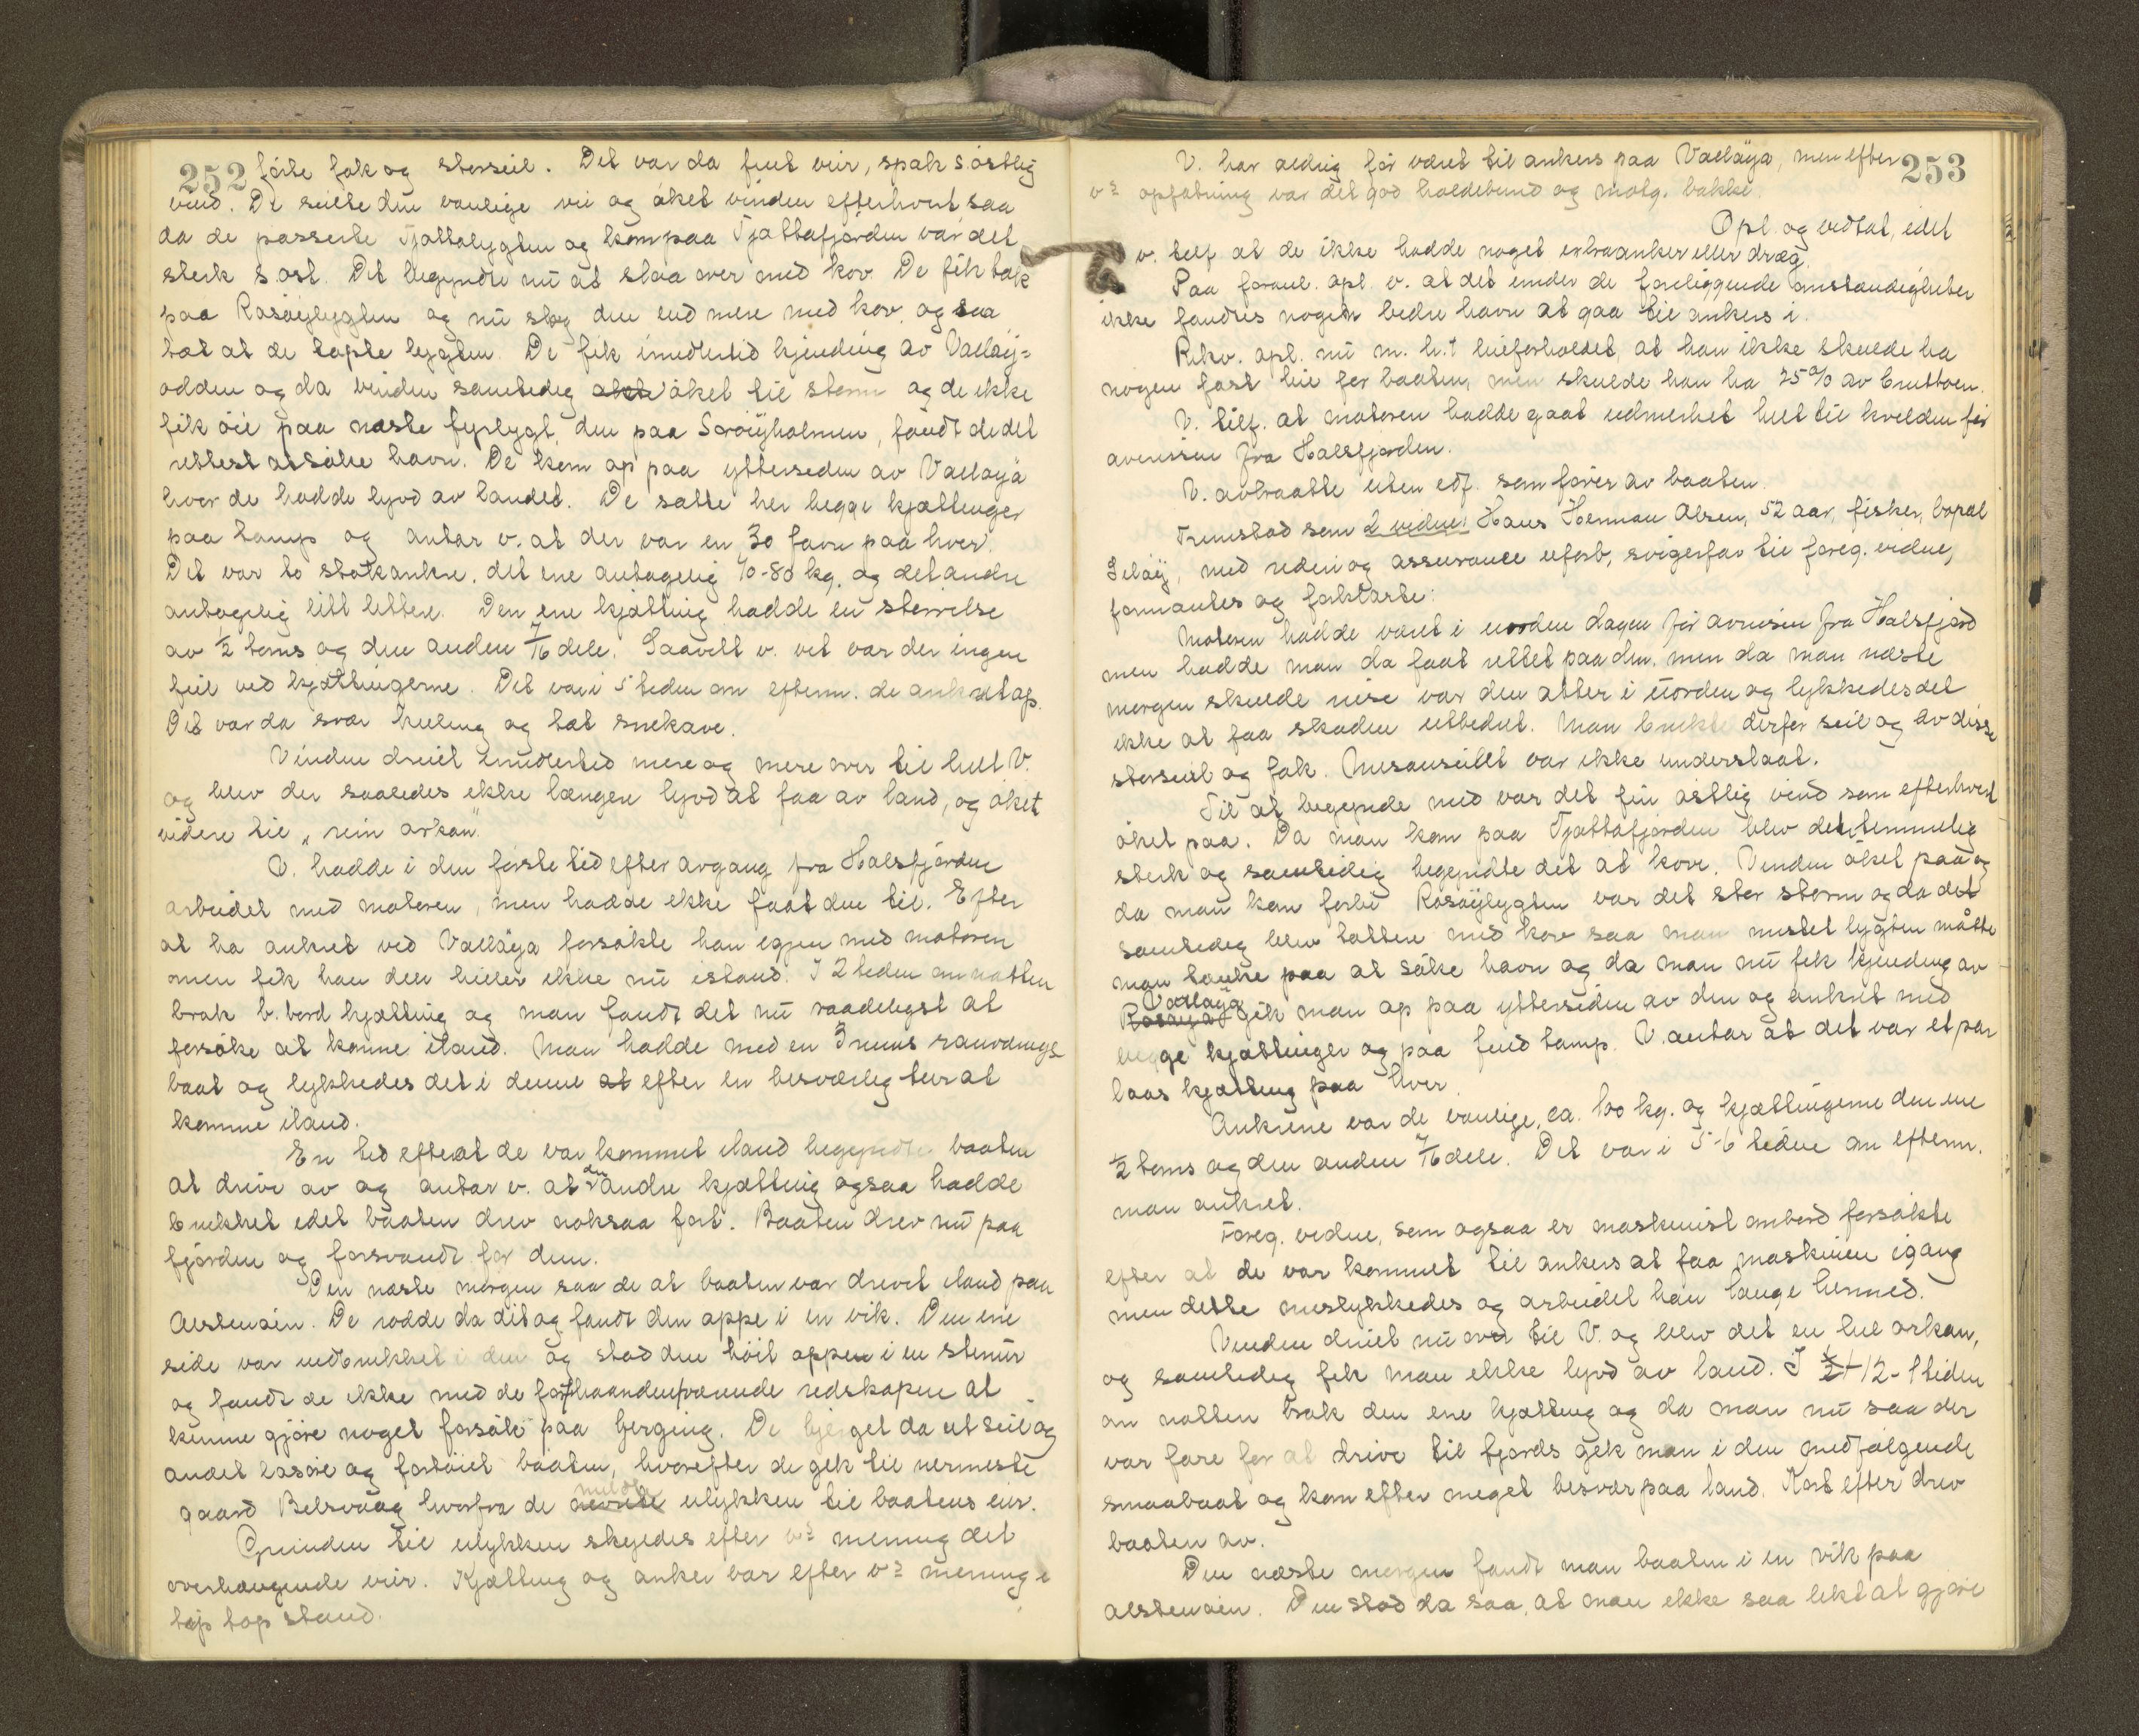 252
förte fok og storseil. Det var da fint veir, spak s.östlig
vind. De seilte den vanlige vei og öket vinden efterhvert saa
da de passerte Tjøttalygten og kom paa Tjøttafjorden var det
sterk s.ost. Det begyndte nu at slaa over med kov. De fik tak
paa Rosöylygten og nu slog den end mere med kov, og saa
tæt at de tapte lygten. De fik imidlertid kjending av Vallöy-
odden og da vinden samtidig öket til storm og de ikke
fik öie paa næste fyrlygt, den paa Soröyholmen, fandt de det
rettest at söke havn. De kom op paa yttersiden av Vallöya
hvor de hadde lyvd av landet. De satte her begge kjættinger
paa tamp og antar v. at der var en 30 favn paa hver.
Det var to stokankre, det ene antagelig 70-80 kg. og det andre
antagelig litt lettere. Den ene kjætting hadde en störrelse
av 1/2 toms og den anden 7/16 dele. Saavitt v. vet var der ingen
feil ved kjættingerne. Det var i 5 tiden om efterm. de ankret op.
Det var da svær kuling og tæt snekave.
Vinden dreiet imidlertid mere og mere over til helt V.
og blev der saaledes ikke længere lyvd at faa av land, og öket
videre til "rein orkan".
V. hadde i den förste tid efter avgang fra Halsfjorden
arbeidet med motoren, men hadde ikke faat den til. Efter
at ha ankret ved Vallöya forsökte han igjen med motoren
men fik han den heller ikke nu istand. I 2 tiden om natten
brak b.bord kjætting og man fandt det nu raadeligst at
forsöke at komme iland. Man hadde med en 3 rums
baat og lykkedes det i denne at efter en besværlig tur at
komme iland.
En tid efterat de var kommet iland begyndte baaten
at drive av og antar v. at den andre kjætting ogsaa hadde
brukket idet baaten drev noksaa fort. Baaten drev nu paa
fjorden og forsvandt for dem.
Den næste morgen saa de at baaten var drevet iland paa
Alstenöen. De rodde da dit og fandt den oppe i en vik. Den ene
side var indbrukket i den og stod den höit oppe i en stenur
og fandt de ikke med de forhaandenværende redskaper at
kunne gjöre noget forsök paa berging. De bjerget da ut seil og
andet lösöre og fortöiet baaten, hvorefter de gik til nermeste
gaard Belsvaag hvorfra de meldte ulykken til baatens eier.
Grunden til ulykken skyldes efter v's mening det
overhængende veir. Kjætting og anker var efter v's mening i
tip top stand.
253
V. har aldrig för været til ankers paa Vallöya, men efter
v's opfatning var det god holdebund og molg. bakke.
Opl. og vedtat, idet
v. tilf. at de ikke hadde noget extraanker eller dræg.
Paa foranl. opl. v. at det under de foreliggende omstændigheter
ikke fandtes nogen bedre havn at gaa til ankers i.
Rekv. opl. nu m. h. t. leieforholdet, at han ikke skulde ha
nogen fast leie for baaten, men skulde han ha 25% av bruttoen.
V. tilf. at motoren hadde gaat udmerket helt til kvelden för
avreisen fra Halsfjorden.
V. avtraatte uten edf. som förer av baaten.
Fremstod som 2 vidne: Hans Herman Olsen, 52 aar, fisker, bopæl
Seløy, med rederi og assurance uforb., svigerfar til foreg. vidne,
formantes og forklarte:
Motoren hadde været i uorden dagen för avreisen fra Halsfjord
men hadde man da faat rettet paa den, men da man næste
morgen skulde reise var den atter i uorden og lykkedes det
ikke at faa skaden utbedret. Man brukte derfor seil og av disse
storseil og fok. Mesanseilet var ikke understaat.
Til at begynde med var det fin östlig vind som efterhvert
öket paa. Da man kom paa Tjøttafjorden blev det temmelig
sterk og samtidig begyndte det at kove. Vinden öket paa og
da man kom forbi Rosöylygten var det stor storm og da det
samtidig blev tættere med kov saa man mistet lygten måtte
man tænke paa at söke havn og da man nu fik kjending av
Rosöya Vallöya gik man op paa yttersiden av den og ankret med
begge kjættinger og paa fuld tamp. V. antar at det var et par
laas kjætting paa hver.
Ankrene var de vanlige, ca. 100 kg. og kjættingerne den ene
1/2 toms og den anden 7/16 dele. Det var i 5-6 tiden om efterm.
man ankret.
Foreg. vidne, som ogsaa er maskinist ombord forsökte
efter at de var kommet til ankers at faa maskinen igang
men dette mislykkedes og arbeidet han länge hermed.
Vinden dreiet nu over til V. og blev det en hel orkan,
og samtidig fik man ikke lyvd av land. I 12-1 tiden
om natten brak den ene kjætting og da man nu saa der
var fare for at drive til fjords gik man i den medfölgende
smaabaat og kom efter meget besvær paa land. Kort efter drev
baaten av.
Den næste morgen fandt man baaten i en vik paa
Alstenöen. Den stod da saa, at man ikke saa likt at gjöre